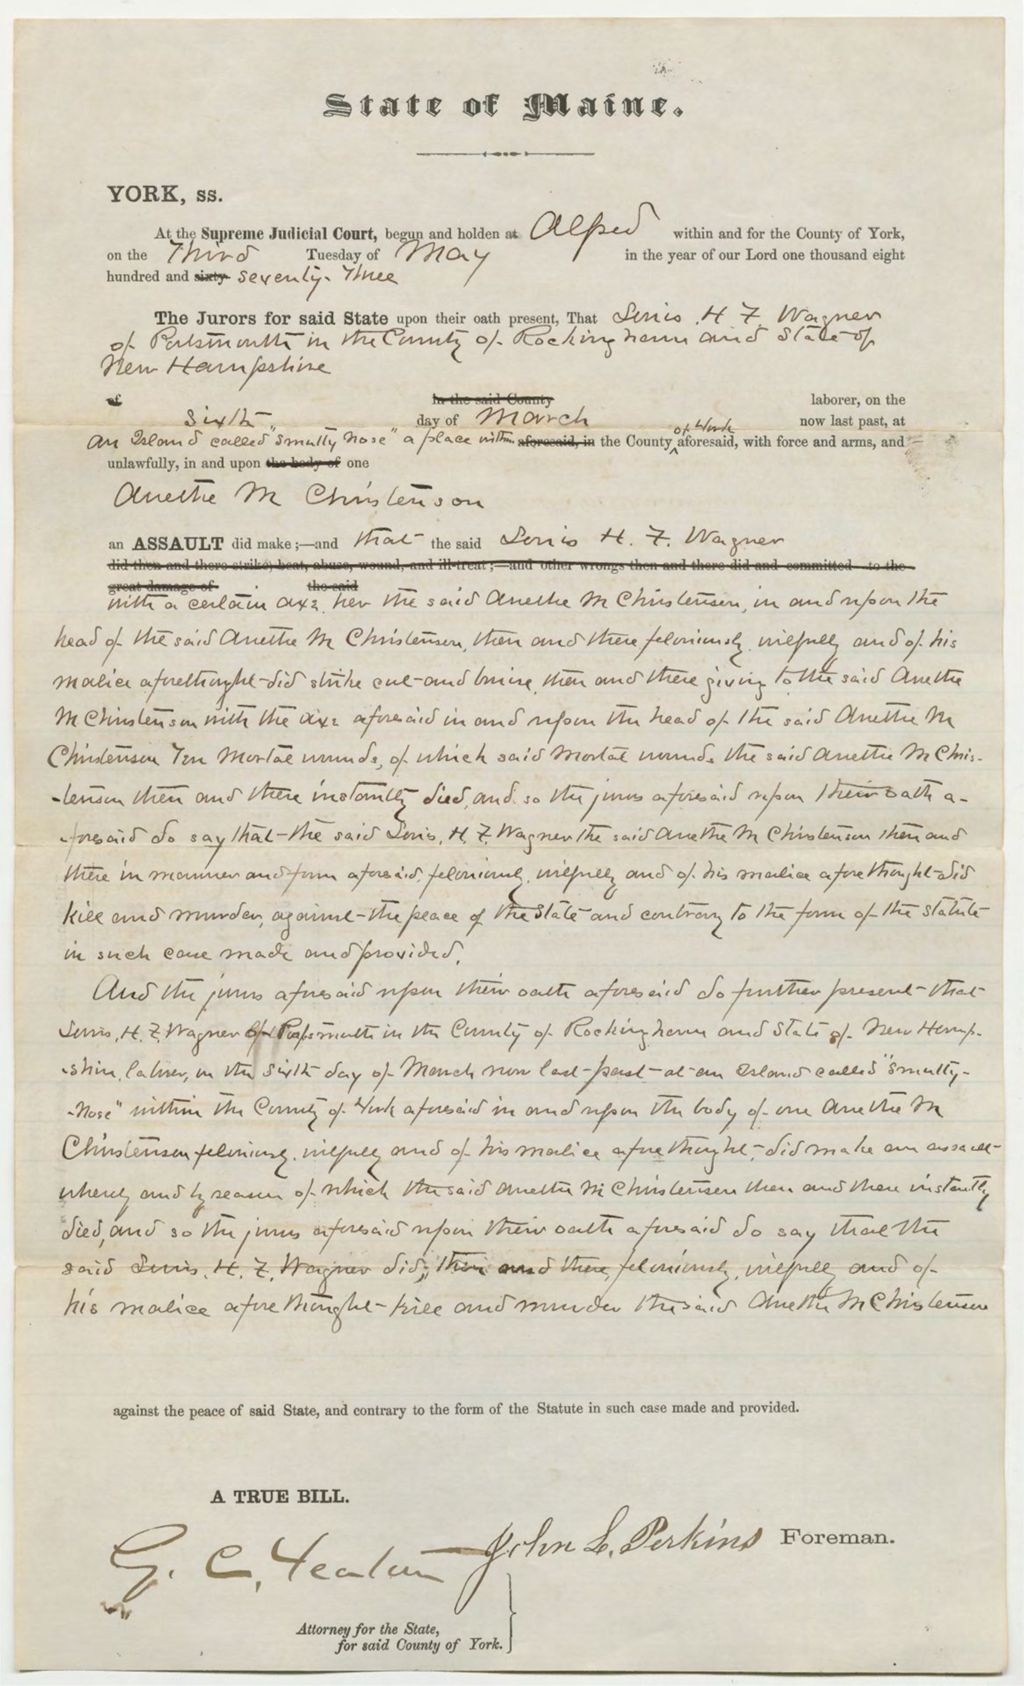 State of Maine.
YORK, ss.
At the Supreme Judicial Court, begun and holden at Alfred within and for the County of York,
on the Third Tuesday of May in the year of our Lord one thousand eight
hundred and sixty seventy-Three
The Jurors for said State upon their oath present, That Louis H. F. Wagner
of Portsmouth in the County of Rockingham and State of
New Hampshire
of In the said County laborer, on the
Sixth day of March now last past, at
an Island called "Smutty Nose" a place within aforesaid, in the County of York aforesaid, with force and arms, and
unlawfully, in and upon the body of one
Anethe M Christenson
an ASSAULT did make;—and that the said Louis H. F. Wagner
did then and there strike, beat, abuse, wound, and ill-treat;—and other wrongs then and there did and committed to the
great damage of the said
with a certain axe, her the said Anethe M Christenson, in and upon the
head of the said Anethe M Christenson, then and there feloniously, wilfully and of his
malice aforethought did strike cut and bruise, then and there giving to the said Anethe
M Christenson with the axe aforesaid in and upon the head of the said Anethe M
Christenson Ten Mortal wounds, of which said Mortal wounds the said Anethe M Chris-
-tenson then and there instantly died, and so the jurors aforesaid upon their oath a-
-foresaid do say that the said Louis, H. F. Wagner the said Anethe M Christenson then and
there in manner and form aforesaid, feloniously, wilfully and of his malice aforethought did
kill and murder, against the peace of the State and contrary to the form of the statute
in such case made and provided.
And the jurors aforesaid upon their oath aforesaid do further present that
Louis, H. F. Wagner of Portsmouth in the County of Rockingham and State of New Hamp-
-shire, laborer, on the sixth day of March now last past at an Island called "Smutty-
-Nose" within the County of York aforesaid in and upon the body of one Anethe M
Christenson feloniously, wilfully and of his malice aforethought, did make an assault
whereby and by reason of which the said Anethe M Christenson then and there instantly
died, and so the jurors aforesaid upon their oath aforesaid do say that the
said Louis, H. F. Wagner did, then and there, feloniously, wilfully and of
his malice aforethought kill and murder the said Anethe M Christenson
against the peace of said State, and contrary to the form of the Statute in such case made and provided.
A TRUE BILL.
John L. Perkins Foreman.
G. C. Yeaton
Attorney for the State,
for said County of York.